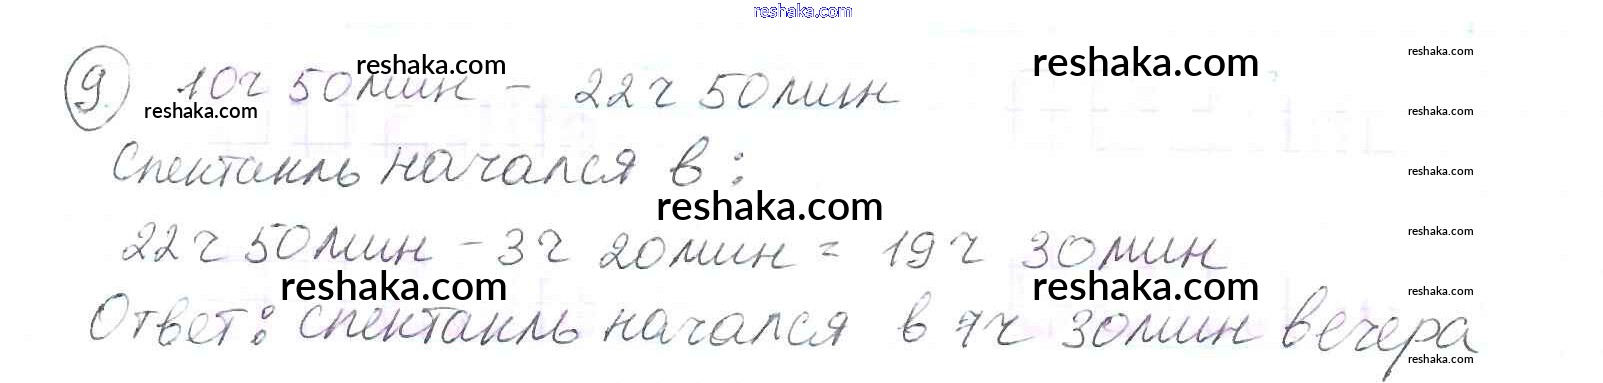 reshaka.com
9 10ч 50мин - 22ч 50мин
reshaka.com reshaka.com reshaka.com
reshaka.com reshaka.com
Спектакль начался в:
reshaka.com reshaka.com
22ч 50мин - 3ч 20мин = 19ч 30мин
reshaka.com
reshaka.com reshaka.com reshaka.com
Ответ: спектакль начался в 7ч 30мин вечера
reshaka.com